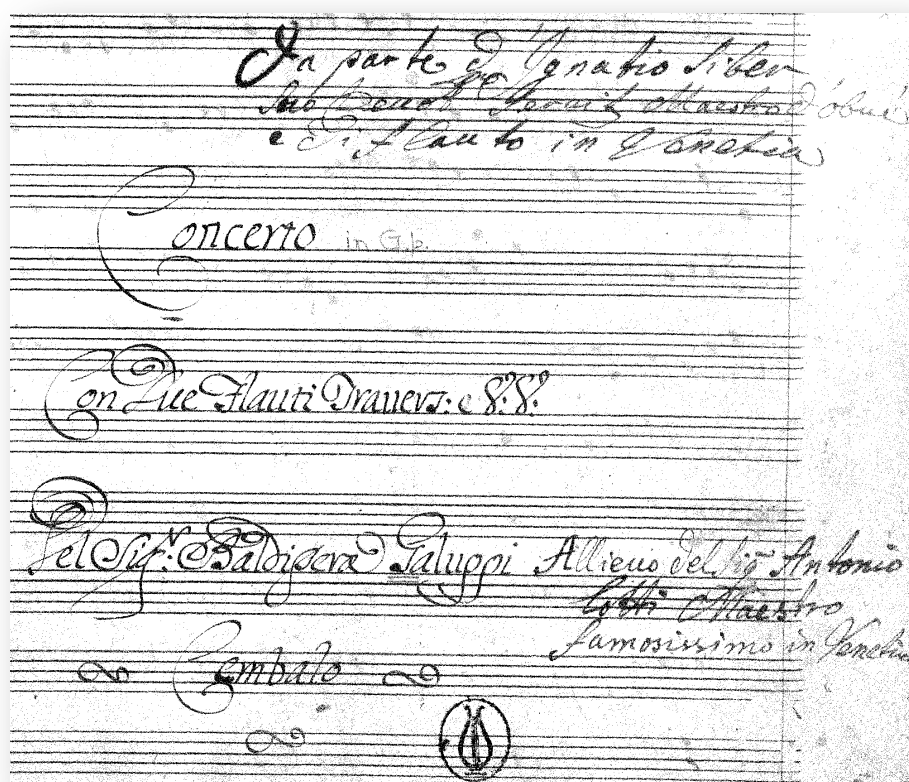 Da parte d' Ignatio Siber
Suo Deuot.mo Seruit.re Maestro d'obuè
e Di flauto in Venetia
Concerto in G.b.
Con Due Flauti Trauers: e V.V.
Del Sig.r: Baldisera Galuppi Allieuo del Sig Antonio
Lotti Maestro
famosissimo in Venetia
Cembalo